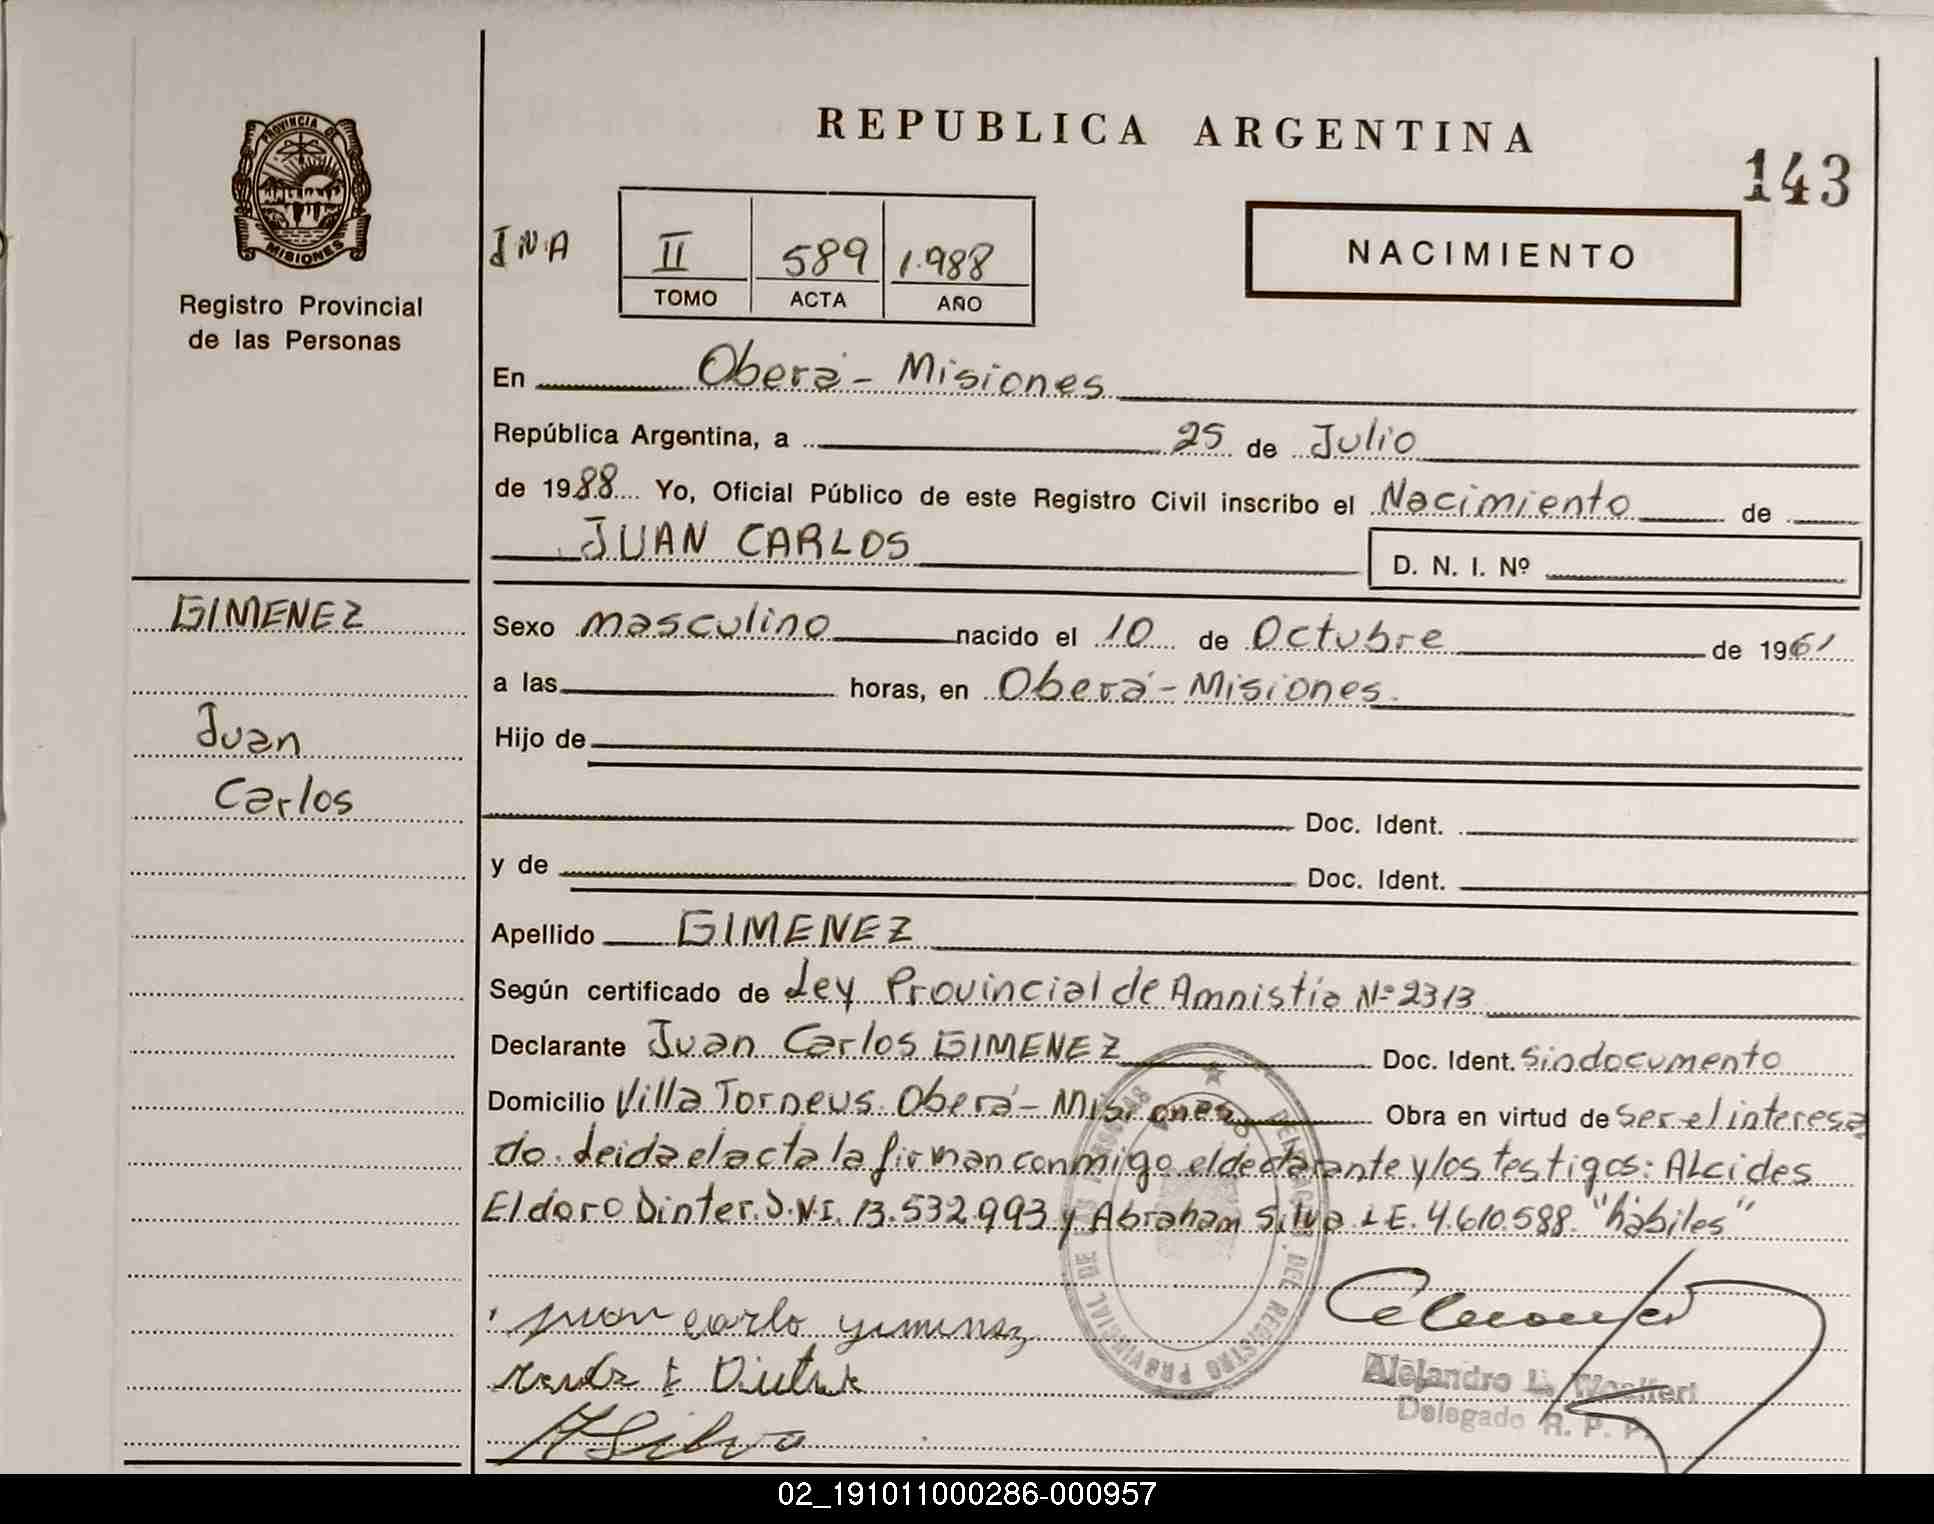 REPUBLICA ARGENTINA
143
PROVINCIA DE
MISIONES
Registro Provincial
de las Personas
INA
II 589 1.988
TOMO ACTA AÑO
NACIMIENTO
En Oberá - Misiones
República Argentina, a 25 de Julio
de 1988 Yo, Oficial Público de este Registro Civil inscribo el Nacimiento de
JUAN CARLOS
D. N. I. Nº
GIMENEZ
Juan
Carlos
Sexo masculino nacido el 10 de Octubre de 1961
a las horas, en Oberá - Misiones.
Hijo de
Doc. Ident.
y de Doc. Ident.
Apellido GIMENEZ
Según certificado de Ley Provincial de Amnistia Nº 2313
Declarante Juan Carlos GIMENEZ Doc. Ident. Sin documento
Domicilio Villa Torneus. Oberá - Misiones Obra en virtud de Ser el interesa
do. Leida el acta la firman conmigo el declarante y los testigos: ALcides
Eldoro Dinter. D.N.I. 13.532.993 y Abraham Silva L.E. 4.610.588. "hábiles"
juan carlo yimenez
A Silva
Alejandro L. Woelfert
Delegado R. P. P.
02_191011000286-000957